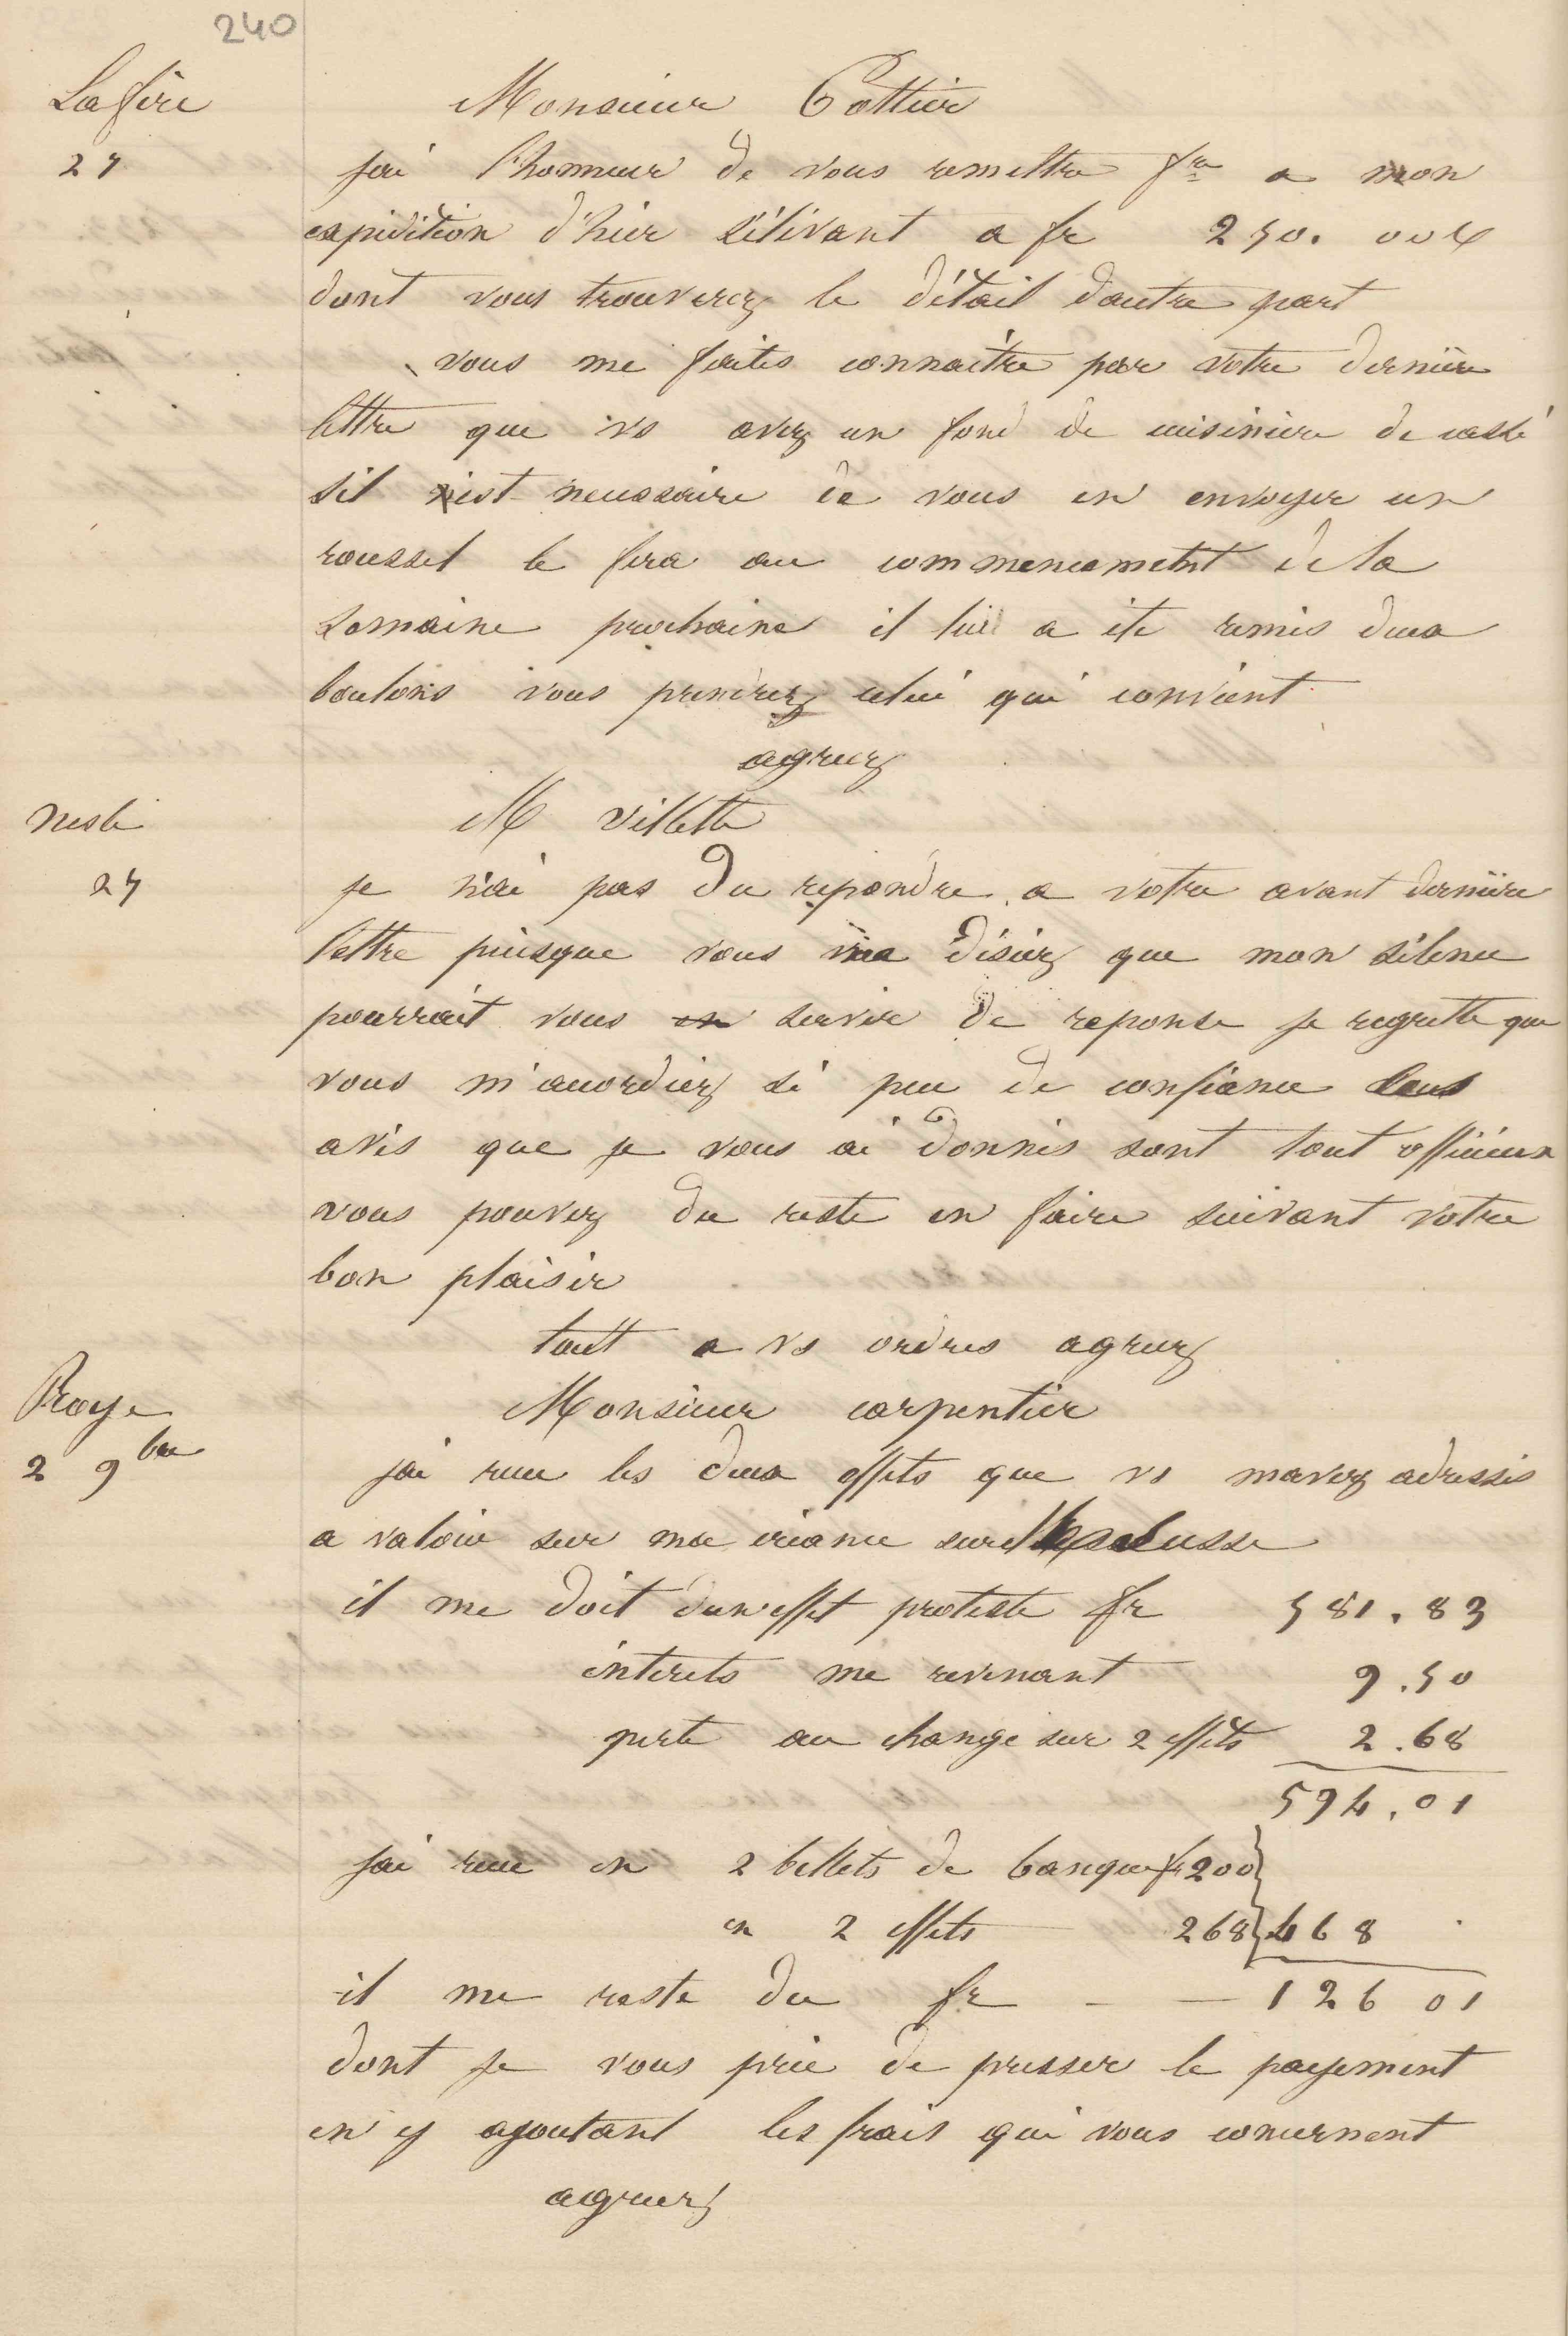 240
Lafère
Monsieur Cottier
27
jai l'honneur de vous remettre fre a mon
expidition d'hier s'élivant a fr 250. 00
dont vous trouverez le détail dautre part
vous me faites connaitre par votre dernière
lettre que vs avez un fond de cuisiniere de cassé
sil est necessaire de vous en envoyer un
roussel le fera au commencement de la
semaine prochaine il lui a ete remis deux
boulons vous prendrez celui qui convient
agreez
nesle
M villette
27
je n'ai pas du repondre a votre avant derniere
lettre puisque vous me disiez que mon silence
pourrait vous en servir de reponse je regrette que
vous m'accordiez si peu de confiance
avis que je vous ai donnés sont tout officieux
vous pouvez du reste en faire suivant votre
bon plaisir
tout a vs ordres agreez
Roye
Monsieur carpentier
2 9bre
jai recu les deux effets que vs mavez adressés
a valoir sur ma créance sur
il me doit dun effet protesté fr 581.83
interets me revenant 9.50
perte au change sur 2 effets 2.68
594.01
jai recu en 2 billets de banque fr 200
en 2 effets 268 468
il me reste du fr - - 126 01
dont je vous prie de presser le payement
en y ajoutant les frais qui vous concernent
agreez